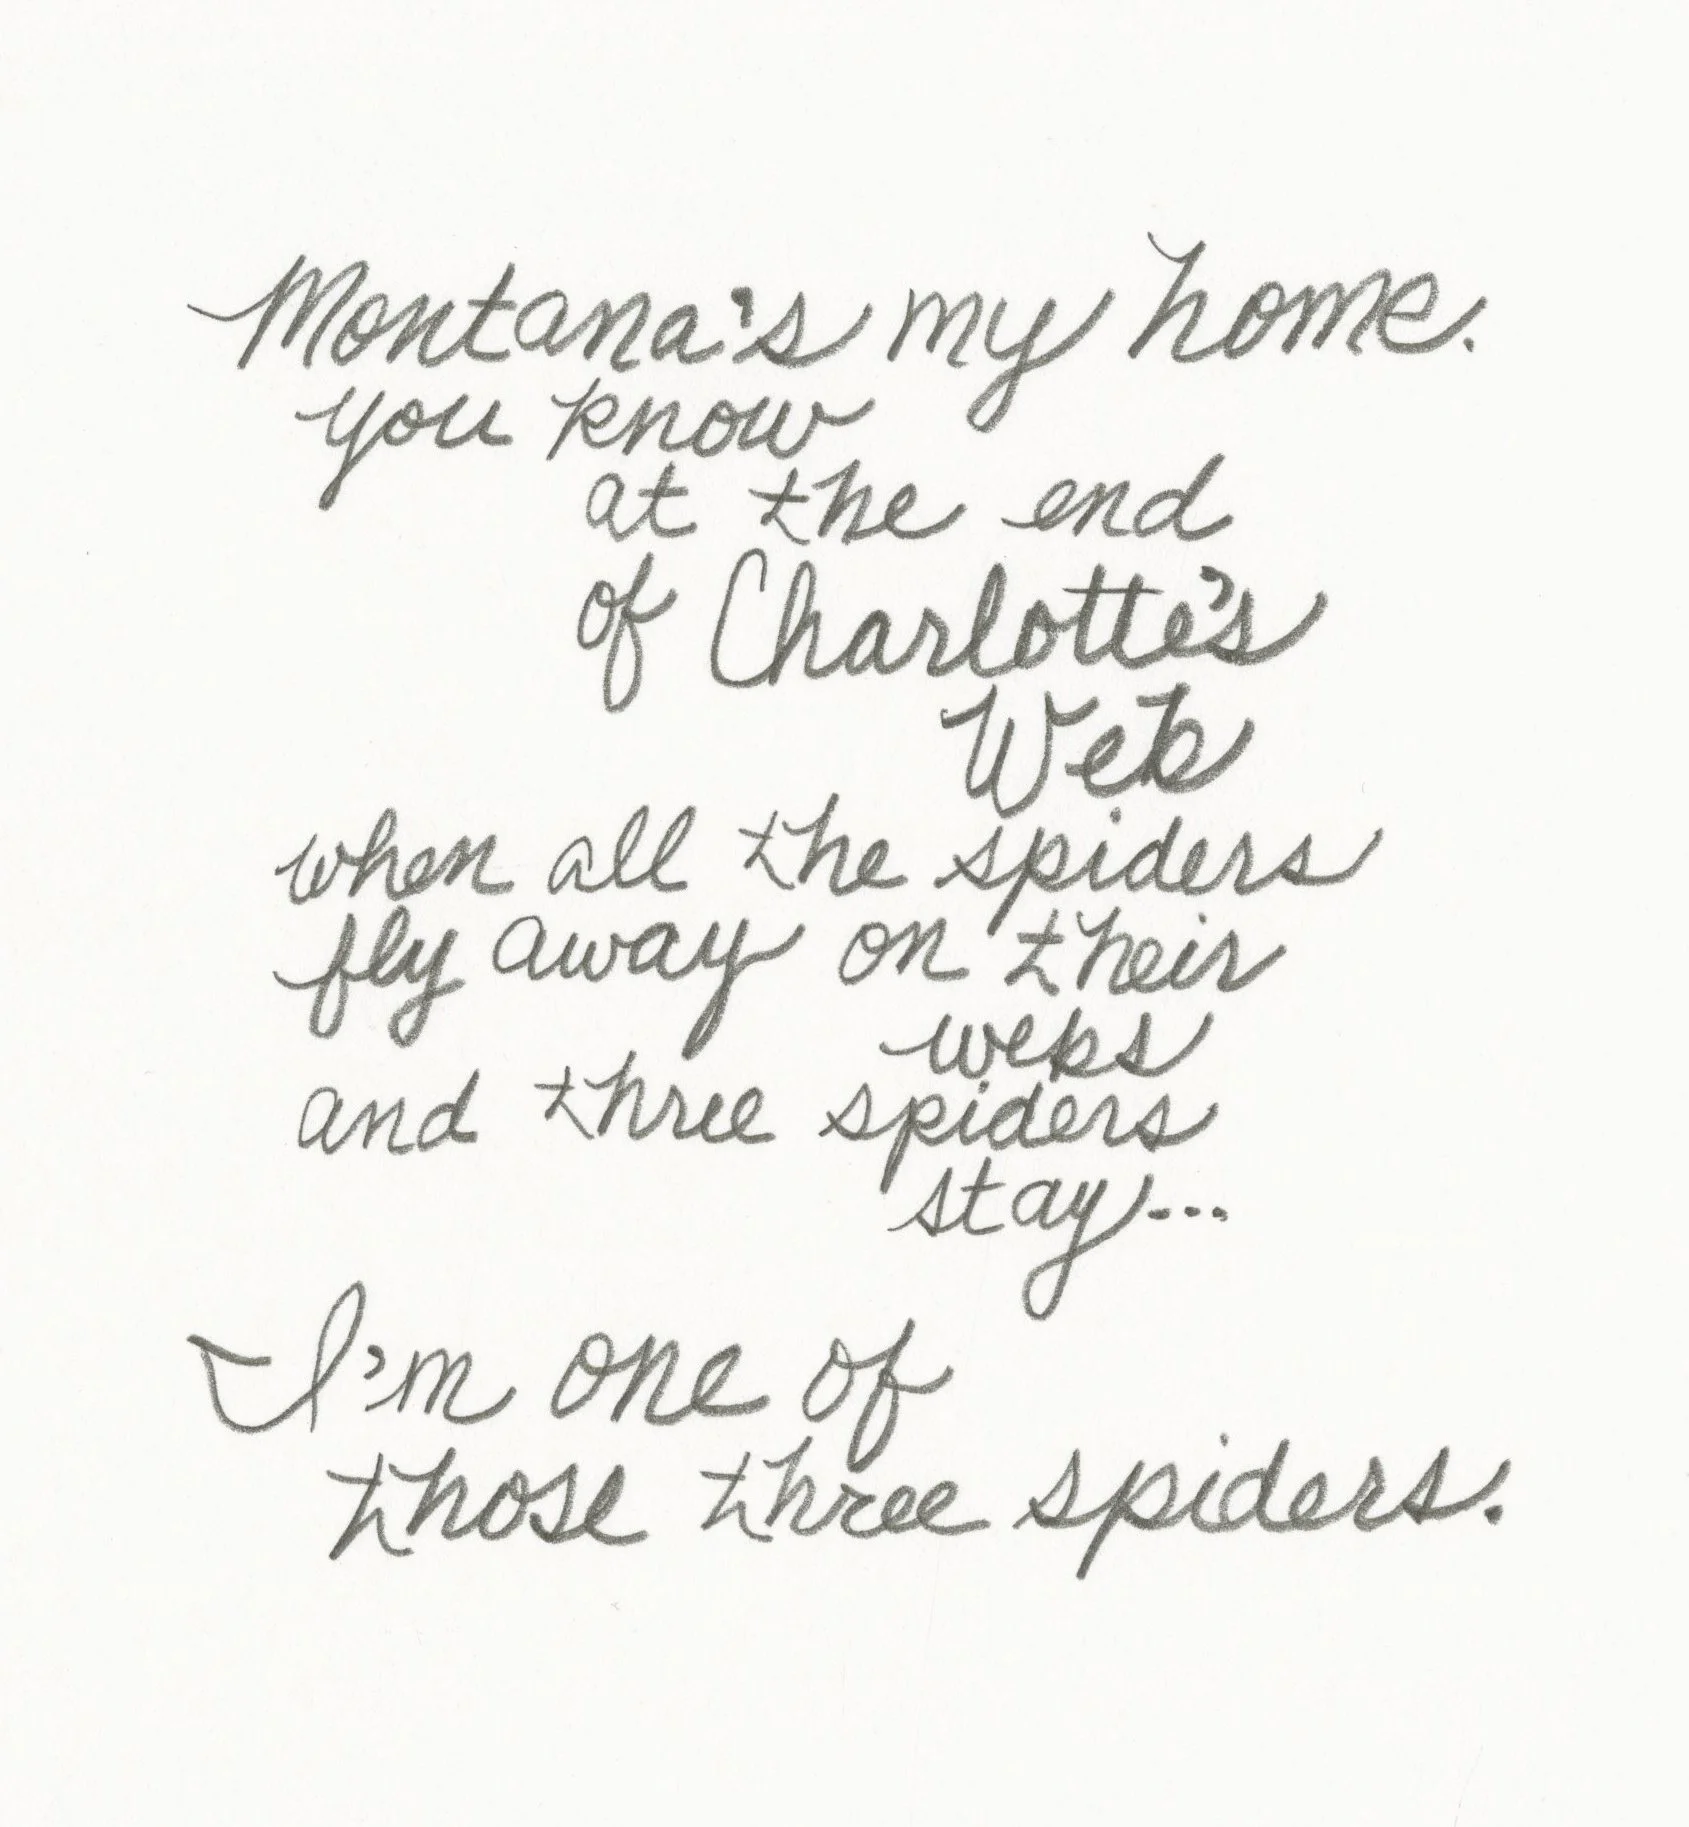 Montana's my home.
you know
at the end
of Charlotte's
Web
when all the spiders
fly away on their
webs
and three spiders
stay...
I'm one of
those three spiders.